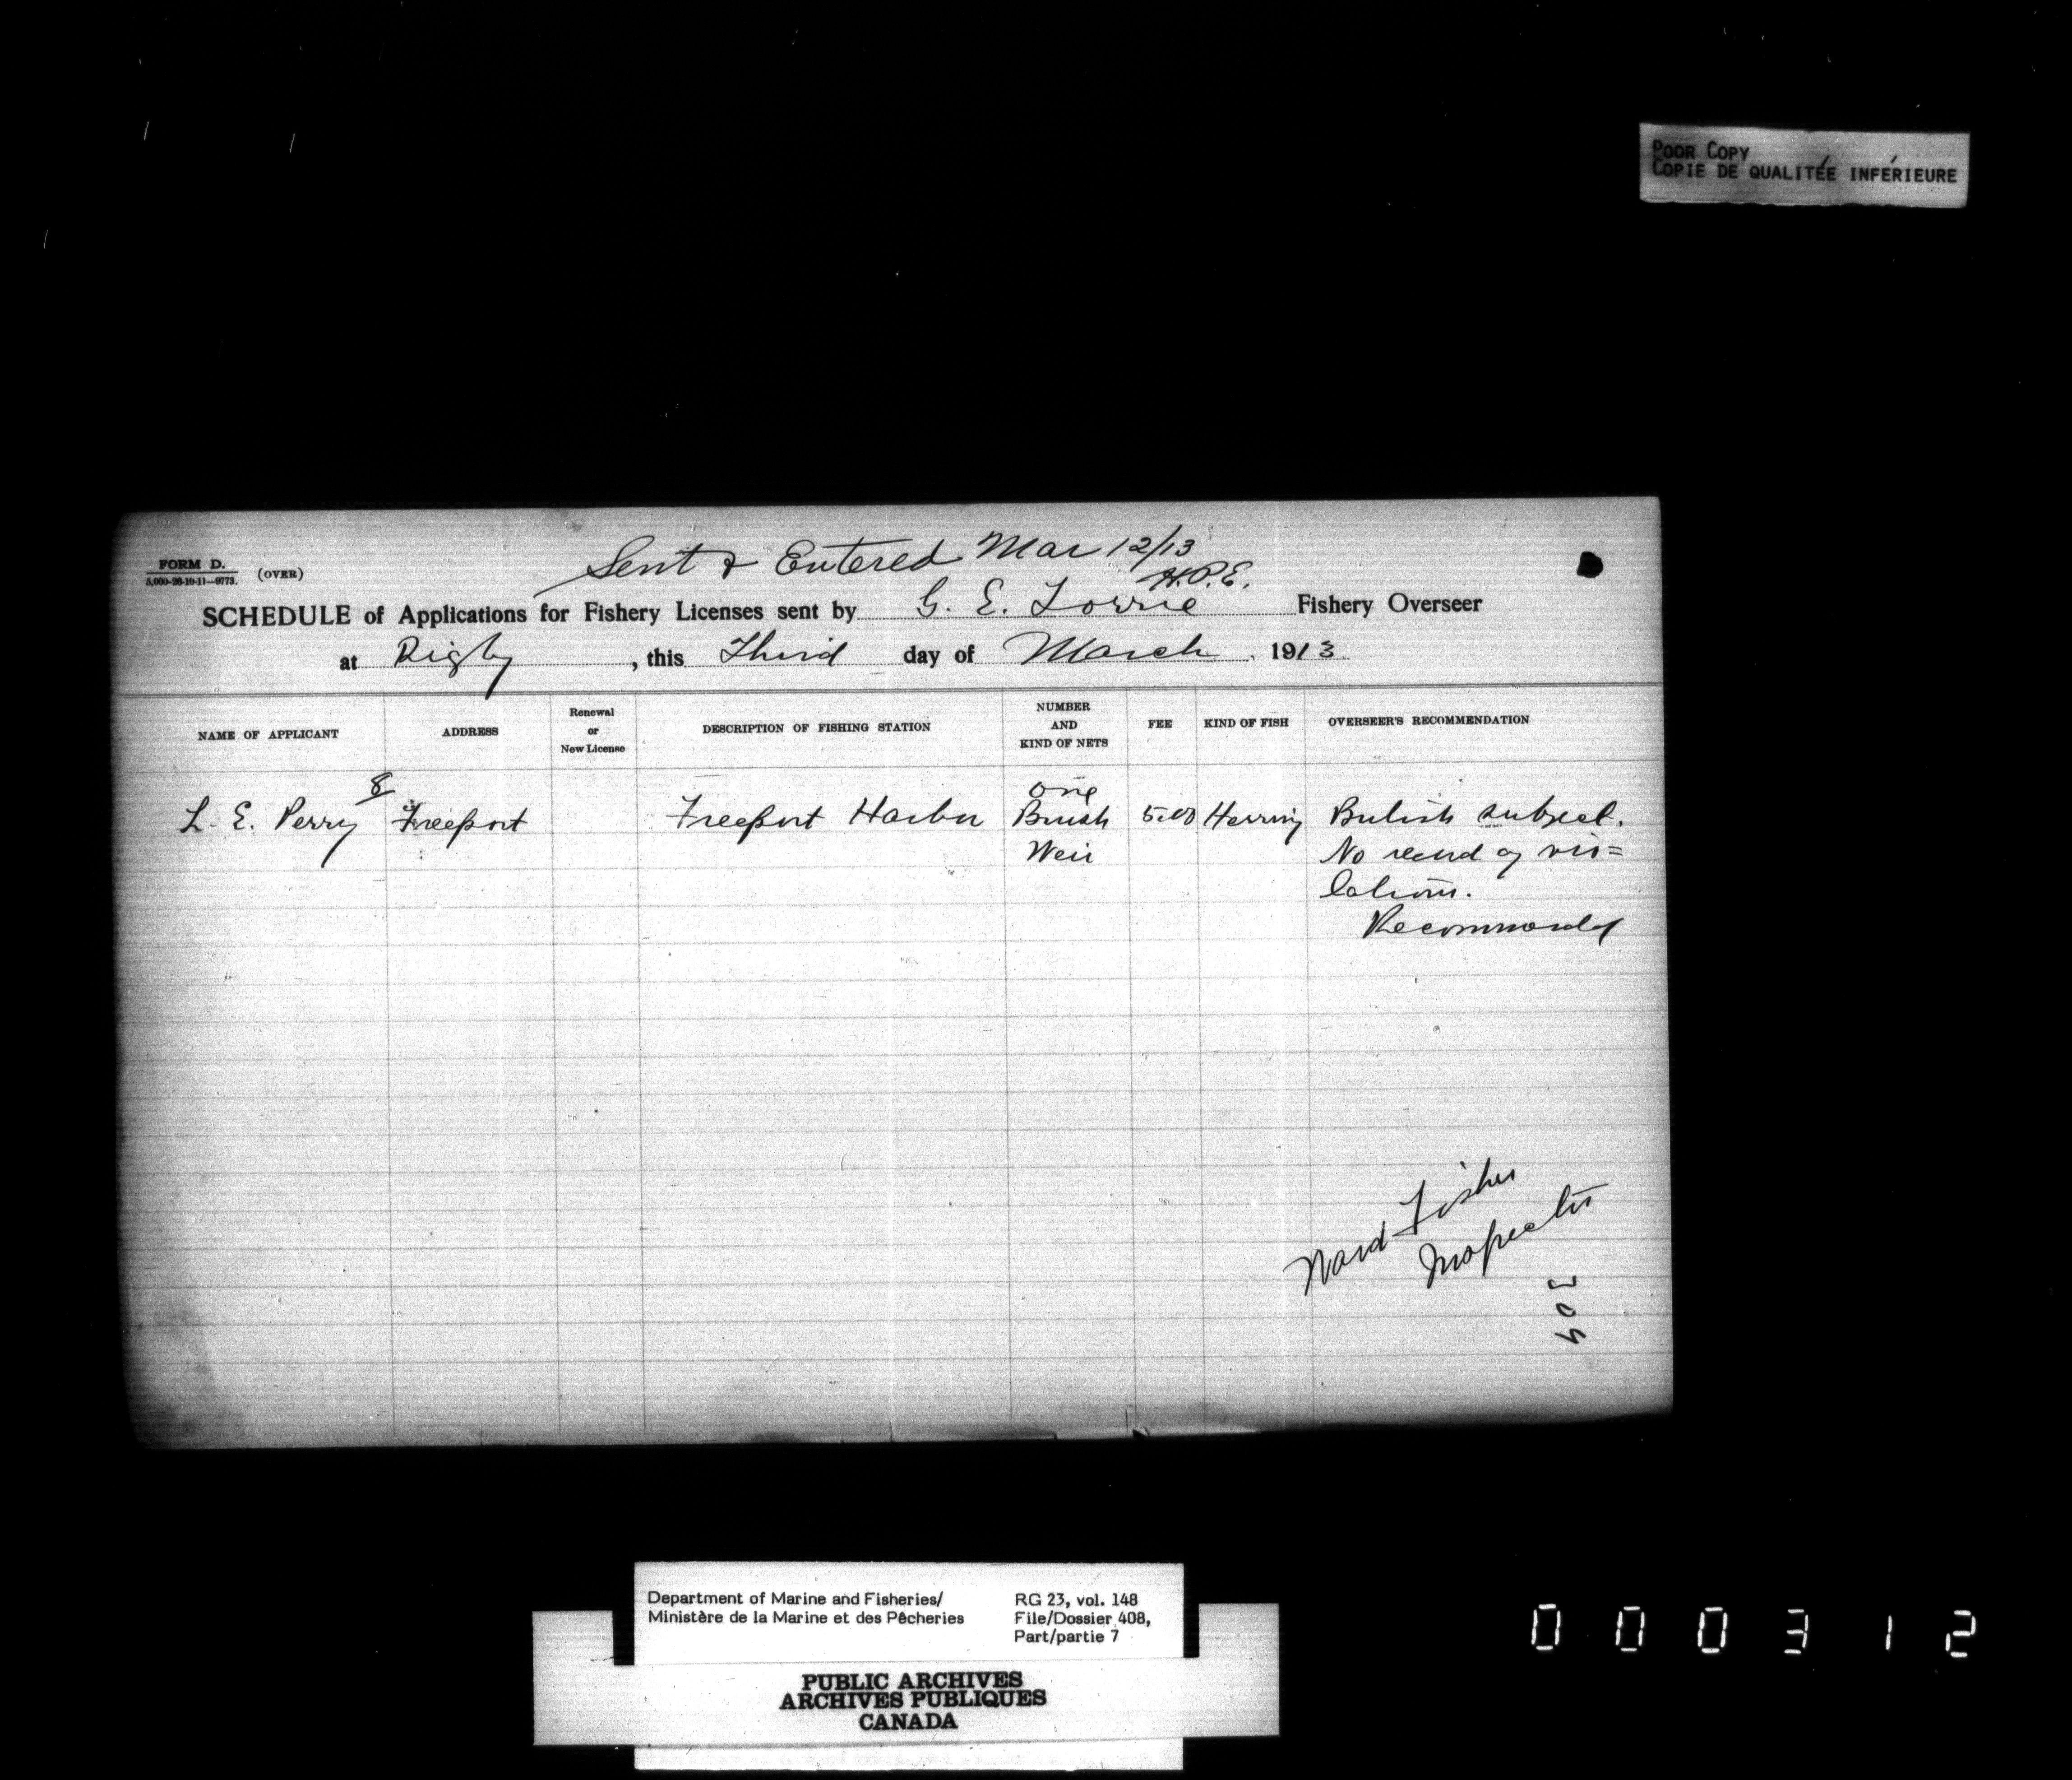 POOR COPY
COPIE DE QUALITÉE INFÉRIEURE
Sent & Entered Mar 12/13
H.P.E.
FORM D.
5,000-26-10-11—9773.
(OVER)
SCHEDULE of Applications for Fishery Licenses sent by G. E. Torrie Fishery Overseer
at Digby, this Third day of March 1913
NAME OF APPLICANT ADDRESS Renewal or New License DESCRIPTION OF FISHING STATION NUMBER AND KIND OF NETS FEE KIND OF FISH OVERSEER'S RECOMMENDATION
8 One
L. E. Perry Freeport Freeport Harbor Brush 5.00 Herring British subject.
Weir No record of vio=
lations.
Recommended
Ward Fisher
Inspector
304
Department of Marine and Fisheries/ RG 23, vol. 148
Ministère de la Marine et des Pêcheries File/Dossier 408,
Part/partie 7
PUBLIC ARCHIVES
ARCHIVES PUBLIQUES
CANADA
000312